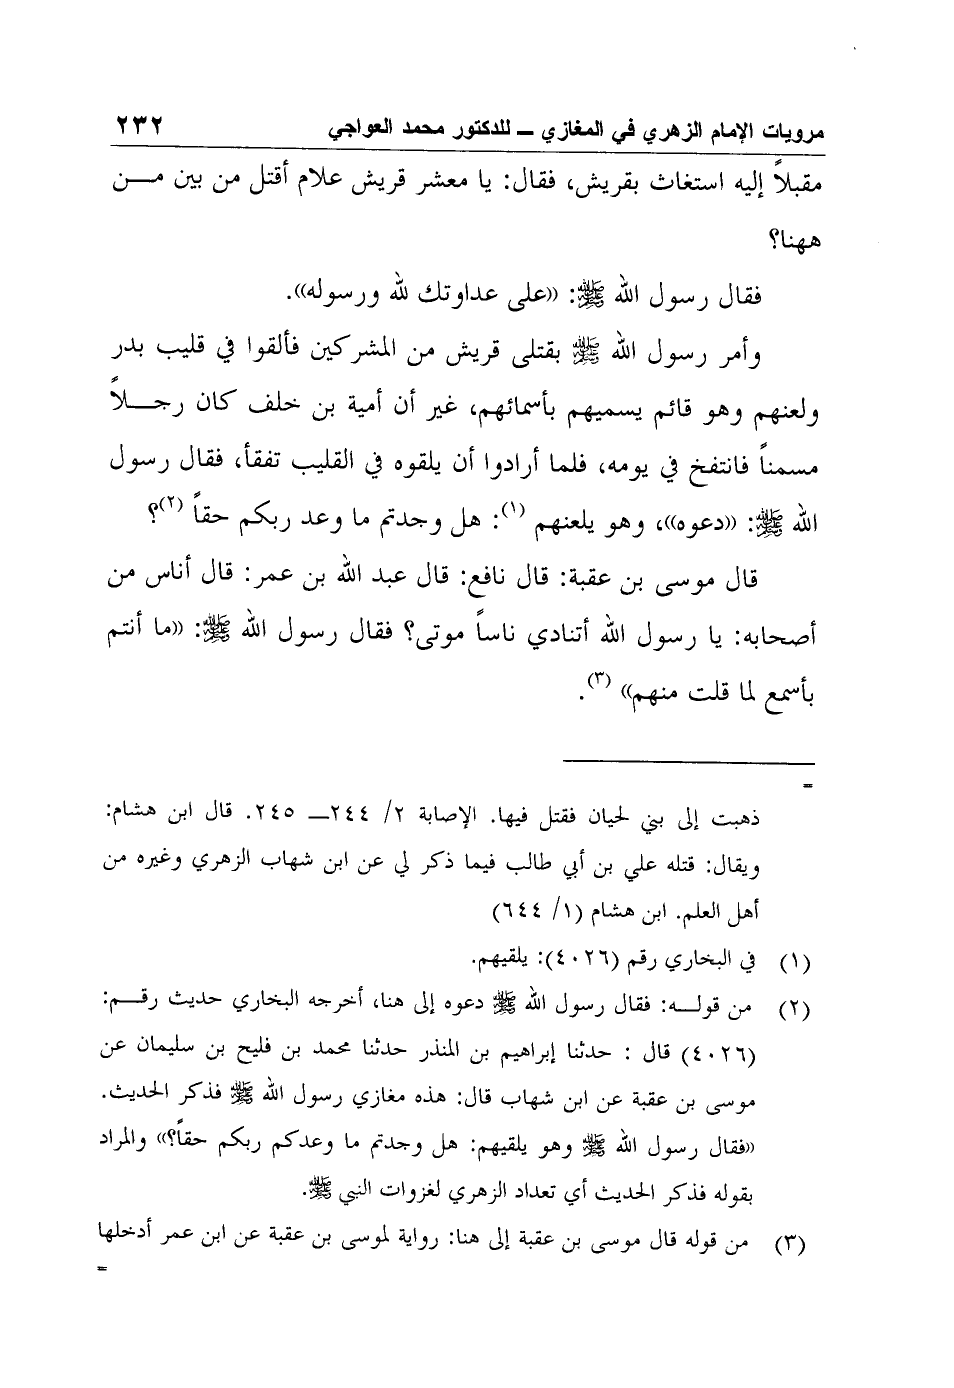 مرويات الإمام الزهري في المغازي ــ للدكتور محمد العواجي ٢٣٢
مقبلاً إليه استغاث بقريش، فقال: يا معشر قريش علام أقتل من بين مـــن
ههنا؟
فقال رسول الله ﷺ: ((على عداوتك لله ورسوله)).
وأمر رسول الله ﷺ بقتلى قريش من المشركين فألقوا في قليب بدر
ولعنهم وهو قائم يسميهم بأسمائهم، غير أن أمية بن خلف كان رجـــلاً
مسمناً فانتفخ في يومه، فلما أرادوا أن يلقوه في القليب تفقأ، فقال رسول
الله ﷺ: ((دعوه))، وهو يلعنهم (١): هل وجدتم ما وعد ربكم حقاً (٢)؟
قال موسى بن عقبة: قال نافع: قال عبد الله بن عمر: قال أناس من
أصحابه: يا رسول الله أتنادي ناساً موتى؟ فقال رسول الله ﷺ: ((ما أنتم
بأسمع لما قلت منهم)) (٣).
=
ذهبت إلى بني لحيان فقتل فيها. الإصابة ٢/ ٢٤٤ــ ٢٤٥. قال ابن هشام:
ويقال: قتله علي بن أبي طالب فيما ذكر لي عن ابن شهاب الزهري وغيره من
أهل العلم. ابن هشام (١/ ٦٤٤)
(١) في البخاري رقم (٤٠٢٦): يلقيهم.
(٢) من قولـــه: فقال رسول الله ﷺ دعوه إلى هنا، أخرجه البخاري حديث رقـــم:
(٤٠٢٦) قال : حدثنا إبراهيم بن المنذر حدثنا محمد بن فليح بن سليمان عن
موسى بن عقبة عن ابن شهاب قال: هذه مغازي رسول الله ﷺ فذكر الحديث.
((فقال رسول الله ﷺ وهو يلقيهم: هل وجدتم ما وعدكم ربكم حقاً؟)) والمراد
بقوله فذكر الحديث أي تعداد الزهري لغزوات النبي ﷺ.
(٣) من قوله قال موسى بن عقبة إلى هنا: رواية لموسى بن عقبة عن ابن عمر أدخلها
=